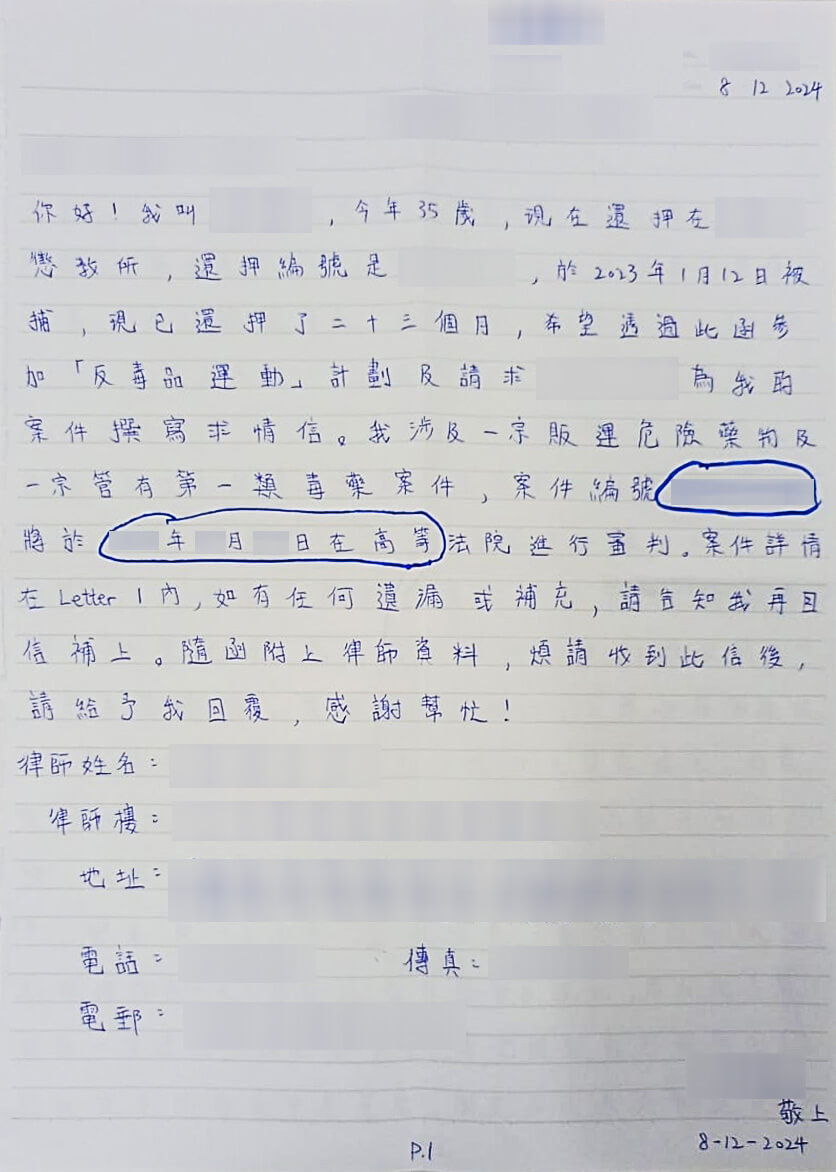 8 12 2024
你好！我叫，今年35歲，現在還押在
懲教所，還押編號是，於2023年1月12日被
捕，現已還押了二十三個月，希望透過此函參
加「反毒品運動」計劃及請求為我的
案件撰寫求情信。我涉及一宗販運危險藥物及
一宗管有第一類毒藥案件，案件編號
將於年月日在高等法院進行審判。案件詳情
在Letter 1內，如有任何遺漏或補充，請告知我再且
信補上。隨函附上律師資料，煩請收到此信後，
請給予我回覆，感謝幫忙！
律師姓名：
律師樓：
地址：
電話：傳真：
電郵：
敬上
8-12-2024
P.1